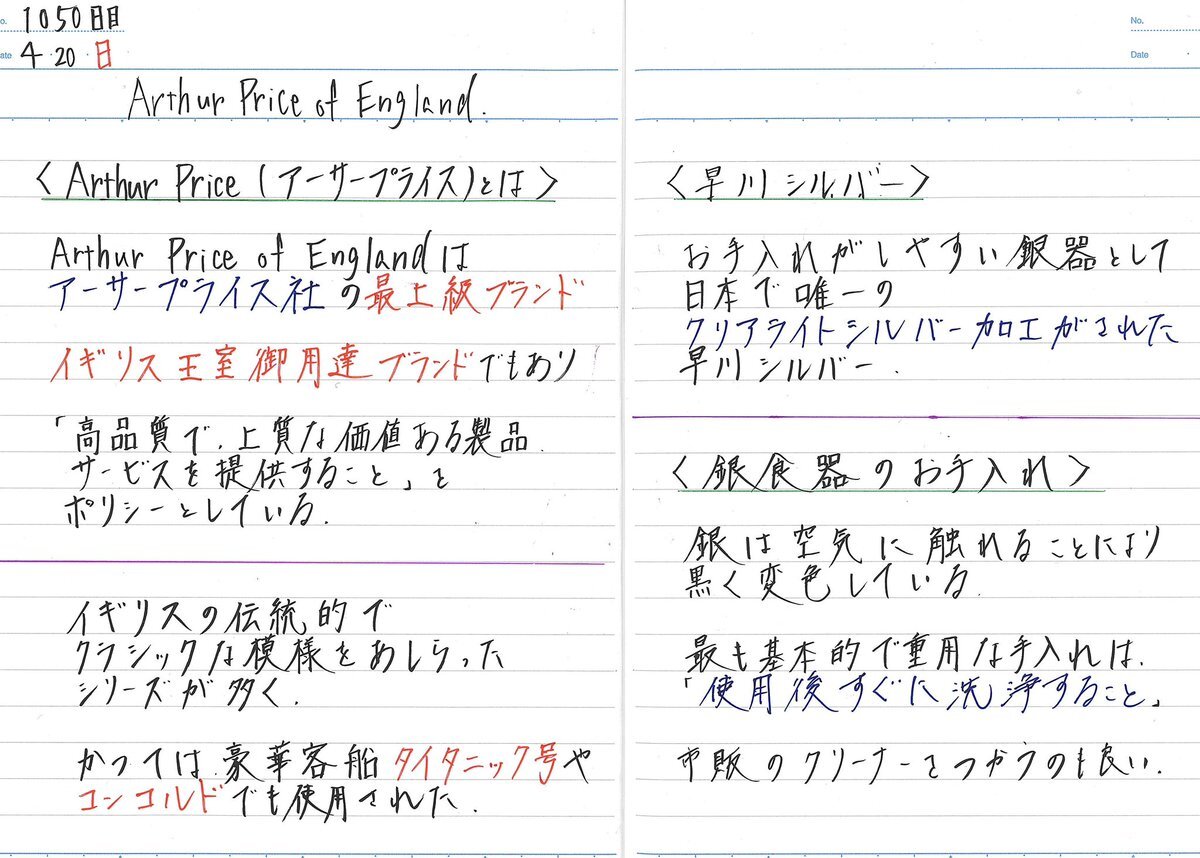 No. 1050日目
Date 4・20・日
Arthur Price of England.
〈Arthur Price (アーサープライス)とは〉
Arthur Price of Englandは
アーサープライス社の最上級ブランド
イギリス王室御用達ブランドでもあり
「高品質で、上質な価値ある製品、
サービスを提供すること」を
ポリシーとしている.
イギリスの伝統的で
クラシックな模様をあしらった
シリーズが多く、
かつては、豪華客船タイタニック号や
コンコルドでも使用された.
No.
Date
〈早川シルバー〉
お手入れがしやすい銀器として
日本で唯一の
クリアライトシルバー加工がされた
早川シルバー.
〈銀食器のお手入れ〉
銀は空気に触れることにより
黒く変色している.
最も基本的で重用な手入れは、
「使用後すぐに洗浄すること」
市販のクリーナーをつかうのも良い.